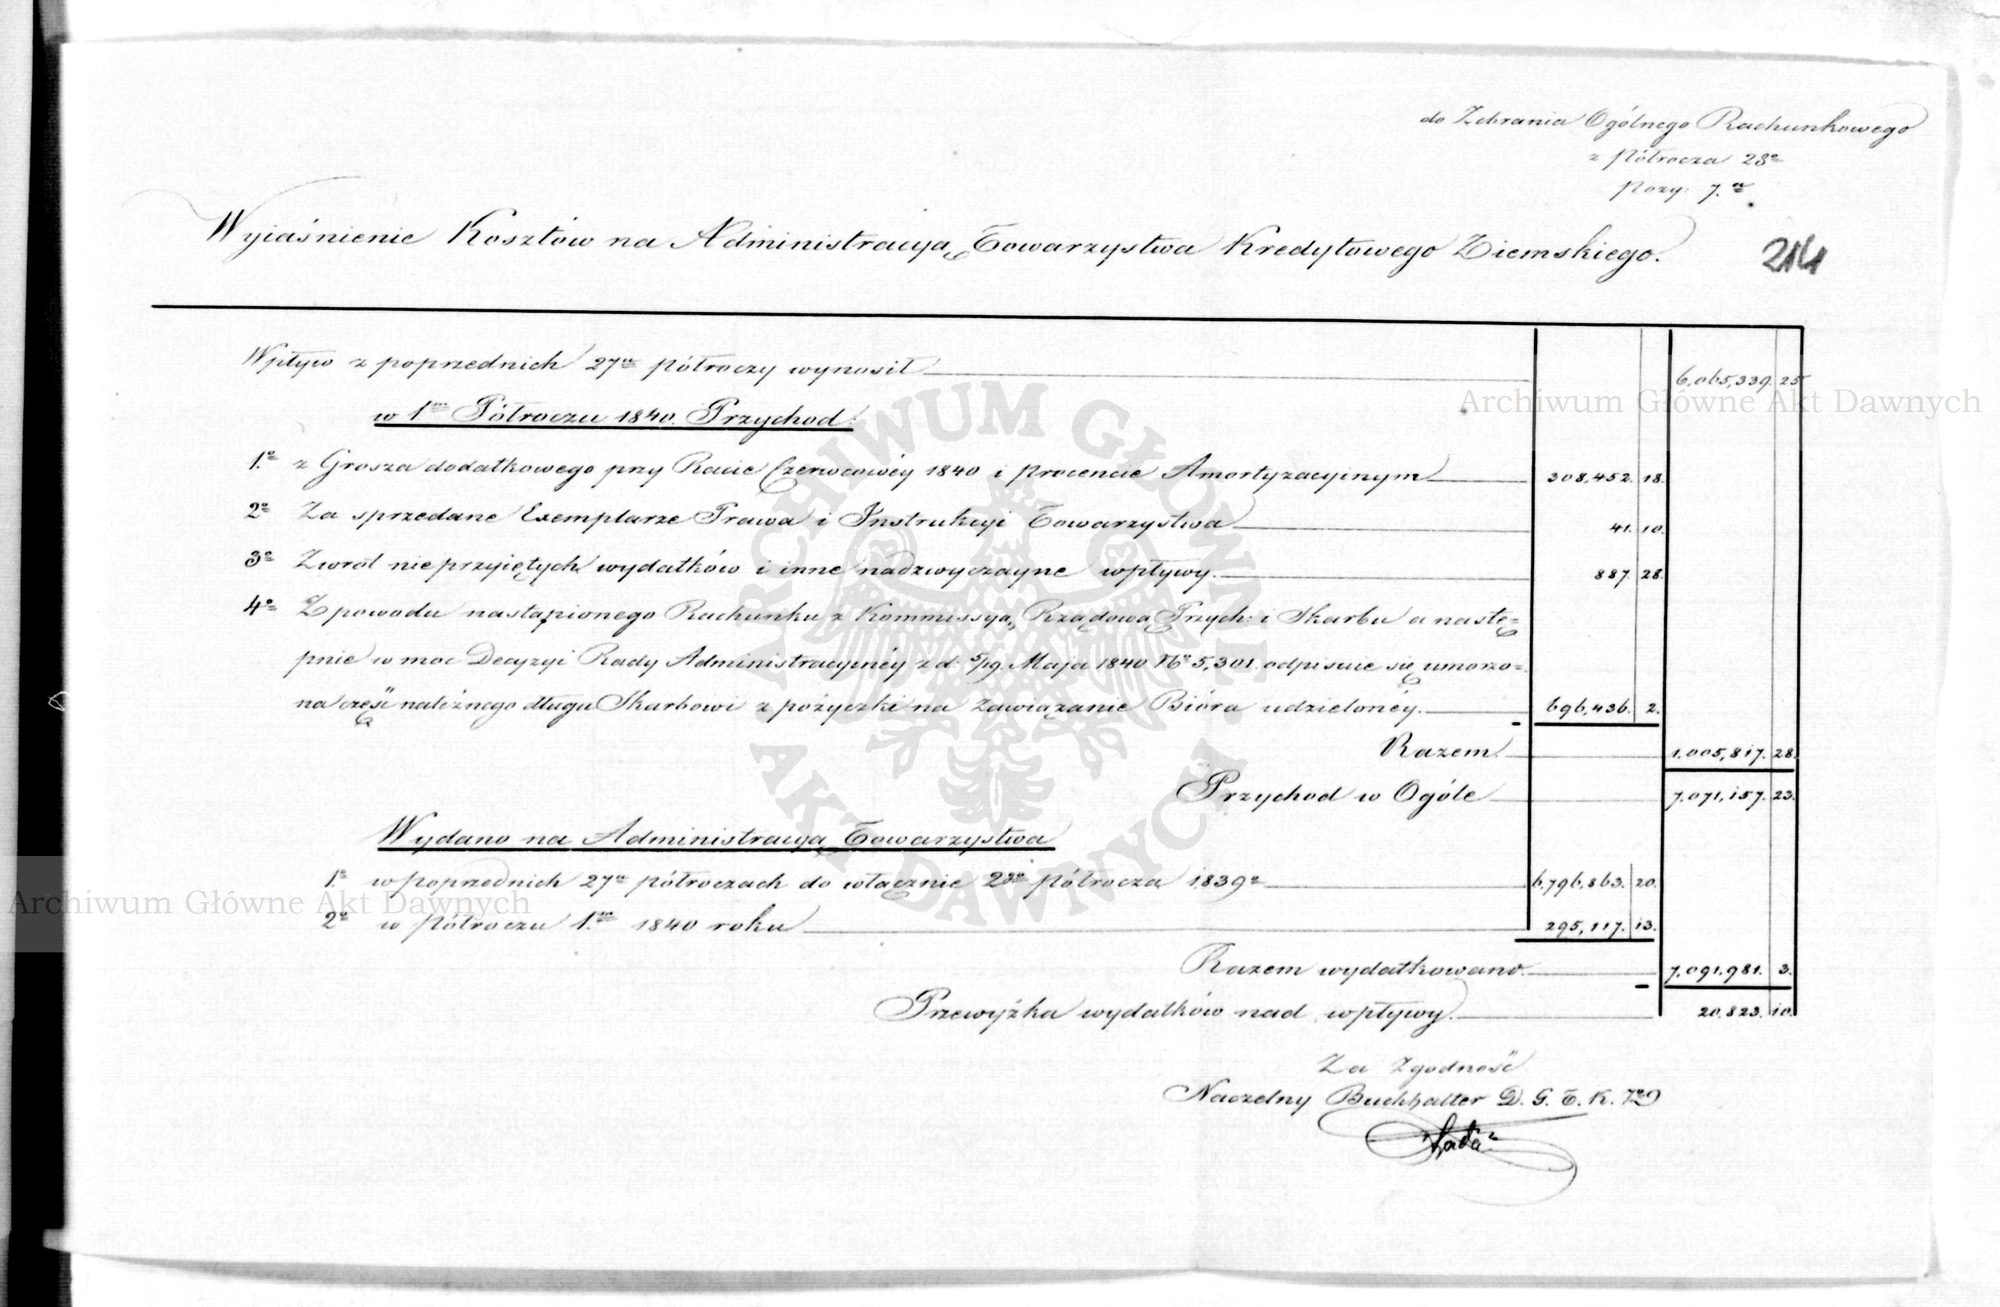 do Zebrania Ogólnego Rachunkowego
z Półrocza 28º
Pozy: 7.ª
214
Wyiaśnienie Kosztów na Administracyą Towarzystwa Kredytowego Ziemskiego.
Wpływ z poprzednich 27ᵘ półroczy wynosił 6,065,339. 25.
w 1ᵐ Półroczu 1840. Przychod:
1.º z Grosza dodatkowego przy Racie Czerwcowéy 1840 i procencie Amortyzacyinym 308,452. 18.
2º Za sprzedane Exemplarze Prawa i Instrukcyi Towarzystwa 41. 10.
3º Zwrot nieprzyiętych wydatków i inne nadzwyczayne wpływy. 887. 28.
4º Z powodu nastąpionego Rachunku z Kommissyą Rządową Przych: i Skarbu a nastę=
pnie w moc Decyzyi Rady Administracyinéy z d: 5/19. Maja 1840 Nº 5,301. odpisuie się umorzo=
na część należnego długu Skarbowi z pożyczki na Zawiązanie Bióra udzielonéy. 696,436. 2.
Razem 1,005,817. 28.
Przychod w Ogóle 7,071,157. 23.
Wydano na Administracyą Towarzystwa
1.º w poprzednich 27ᵘ półroczach do włącznie 2go półrocza 1839º 6,796,863. 20.
2º w Półroczu 1.ᵐ 1840 roku 295,117. 13.
Razem wydatkowano. 7,091,981. 3.
Przewyżka wydatków nad wpływy. 20,823. 10.
Za Zgodność
Naczelny Buchhalter D. G. T. K. Zgo
Archiwum Główne Akt Dawnych
Archiwum Główne Akt Dawnych
ARCHIWUM GŁÓWNE AKT DAWNYCH